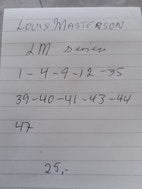 LOUIS MASTERSON
LM series
1-4-9-12-35
39-40-41-43-44
47
25,-